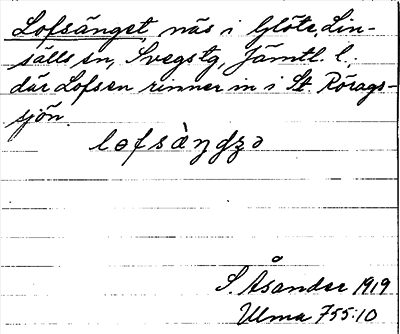 Lofsänget, näs i Glöte, Lin-
sälls sn, Svegs tg, Jämtl. l.;
där Lofsen rinner in i St. Rörags-
sjön.
S. Åsander 1919
Ulma 755:10